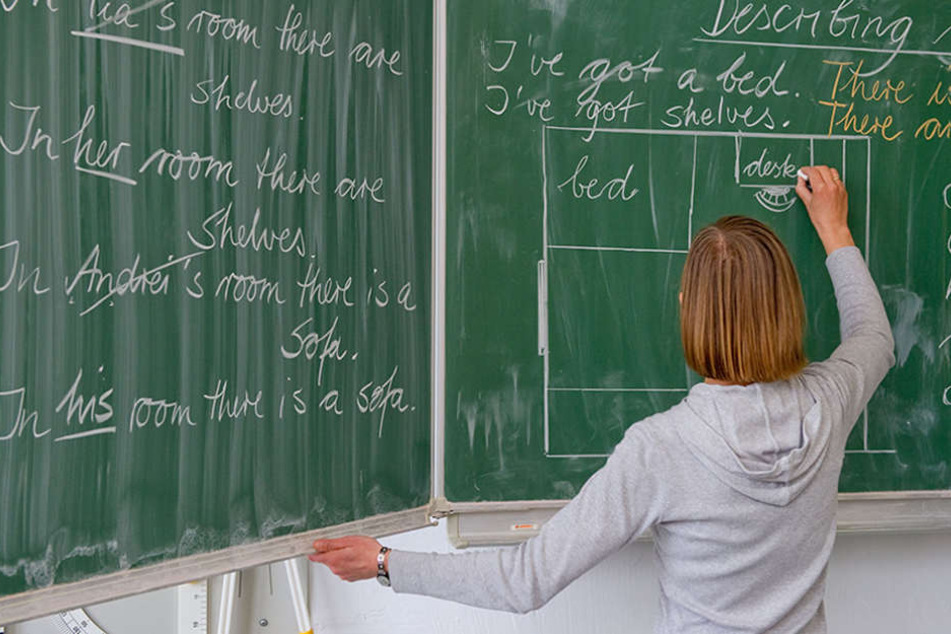 room there are
shelves.
In her room there are
shelves.
In Andrei's room there is a
sofa.
In his room there is a sofa.
Describing
I've got a bed.
There
I've got shelves.
There
bed
desk